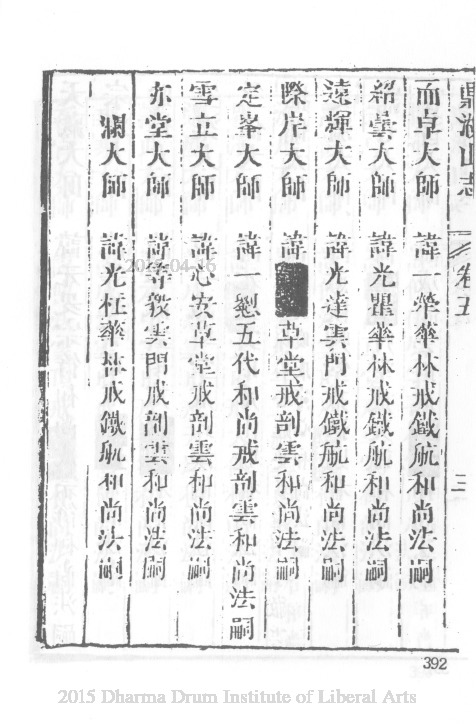 鼎湖山志 卷五 三
而卓大師 諱一犖華林戒鐵航和尚法嗣
紹曇大師 諱光瞿華林戒鐵航和尚法嗣
遠輝大師 諱光達雲門戒鐵航和尚法嗣
際岸大師 諱 草堂戒剖雲和尚法嗣
定峯大師 諱一 五代和尚戒剖雲和尚法嗣
雪立大師 諱心安草堂戒剖雲和尚法嗣
亦堂大師 諱 雲門戒剖雲和尚法嗣
瀾大師 諱光 華林戒鐵航和尚法嗣
392
2015 Dharma Drum Institute of Liberal Arts